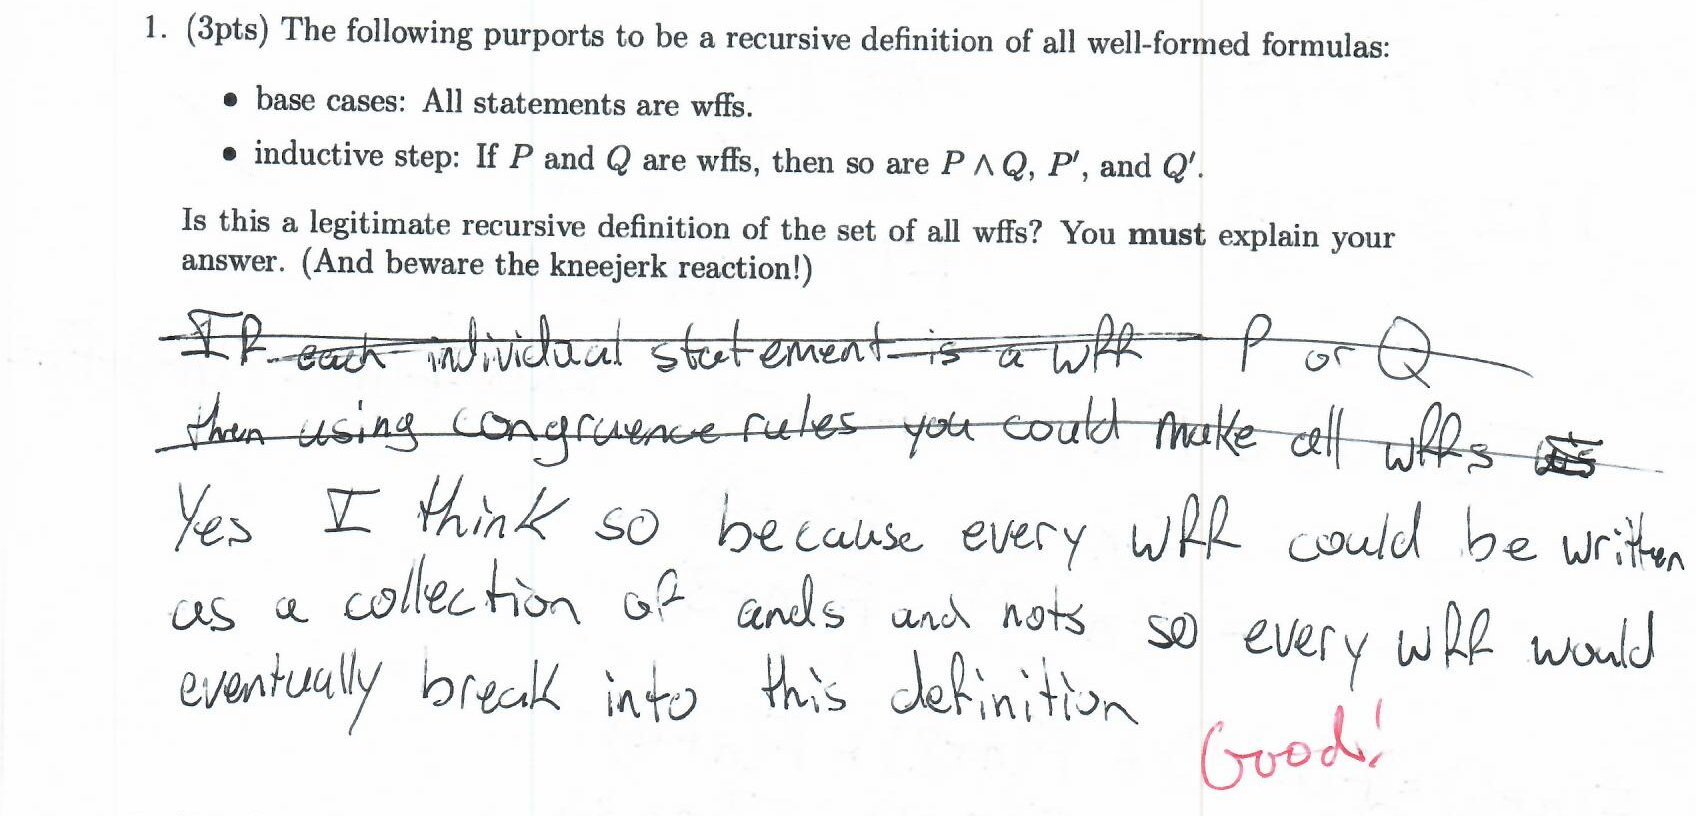 1. (3pts) The following purports to be a recursive definition of all well-formed formulas:
• base cases: All statements are wffs.
• inductive step: If P and Q are wffs, then so are P ∧ Q, P′, and Q′.
Is this a legitimate recursive definition of the set of all wffs? You must explain your
answer. (And beware the kneejerk reaction!)
If each individual statement is a wff P or Q
then using congruence rules you could make all wffs
Yes I think so because every wff could be written
as a collection of ands and nots so every wff would
eventually break into this definition
Good!